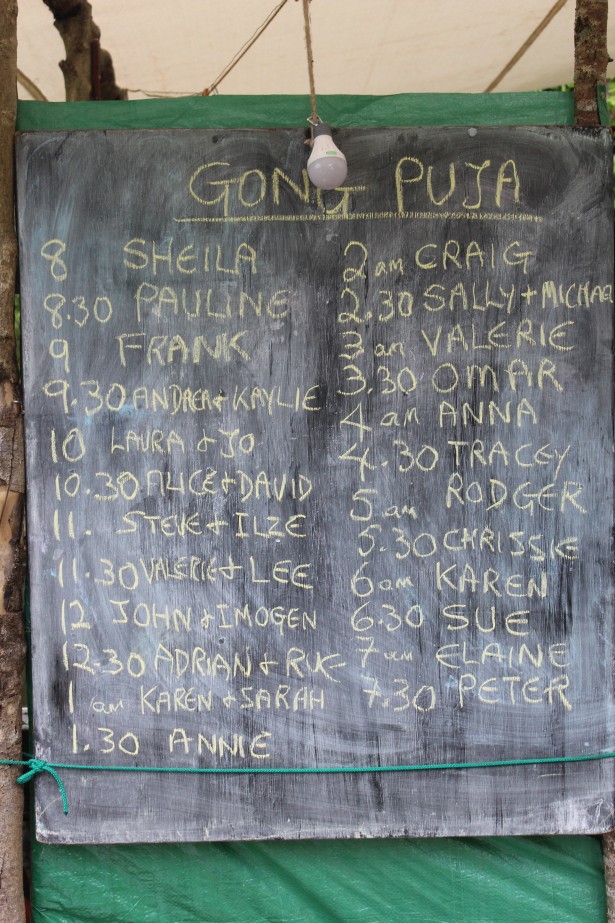 GONG PUJA
8 SHEILA
8.30 PAULINE
9 FRANK
9.30 ANDREA + KAYLIE
10 LAURA + JO
10.30 ALICE + DAVID
11. STEVE + ILZE
11.30 VALERIE + LEE
12 JOHN + IMOGEN
12.30 ADRIAN +
1 am KAREN + SARAH
1.30 ANNIE
2 am CRAIG
2.30 SALLY + MICHAEL
3 am VALERIE
3.30 OMAR
4 am ANNA
4.30 TRACEY
5 am RODGER
5.30 CHRISSIE
6 am KAREN
6.30 SUE
7 am ELAINE
7.30 PETER